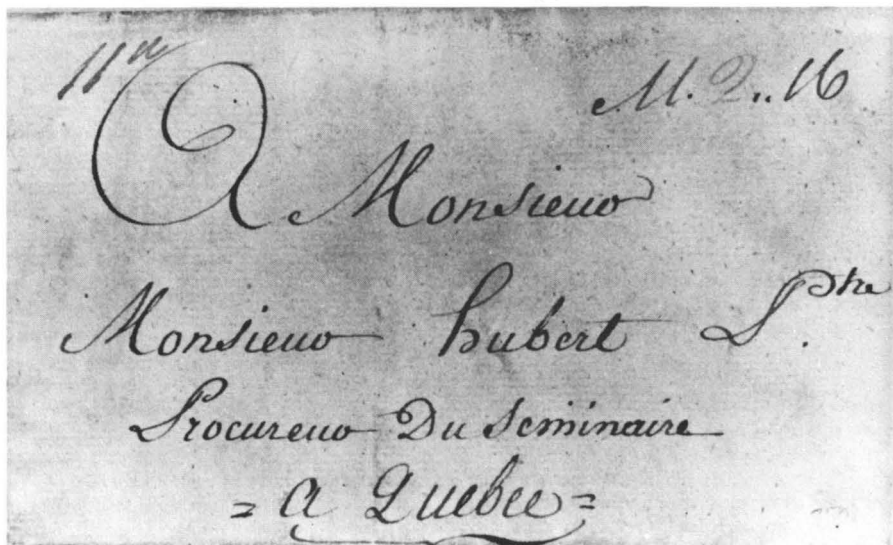 11
M. 2.. 16
A Monsieur
Monsieur hubert P.tre
Procureur Du Seminaire
= a Quebec =